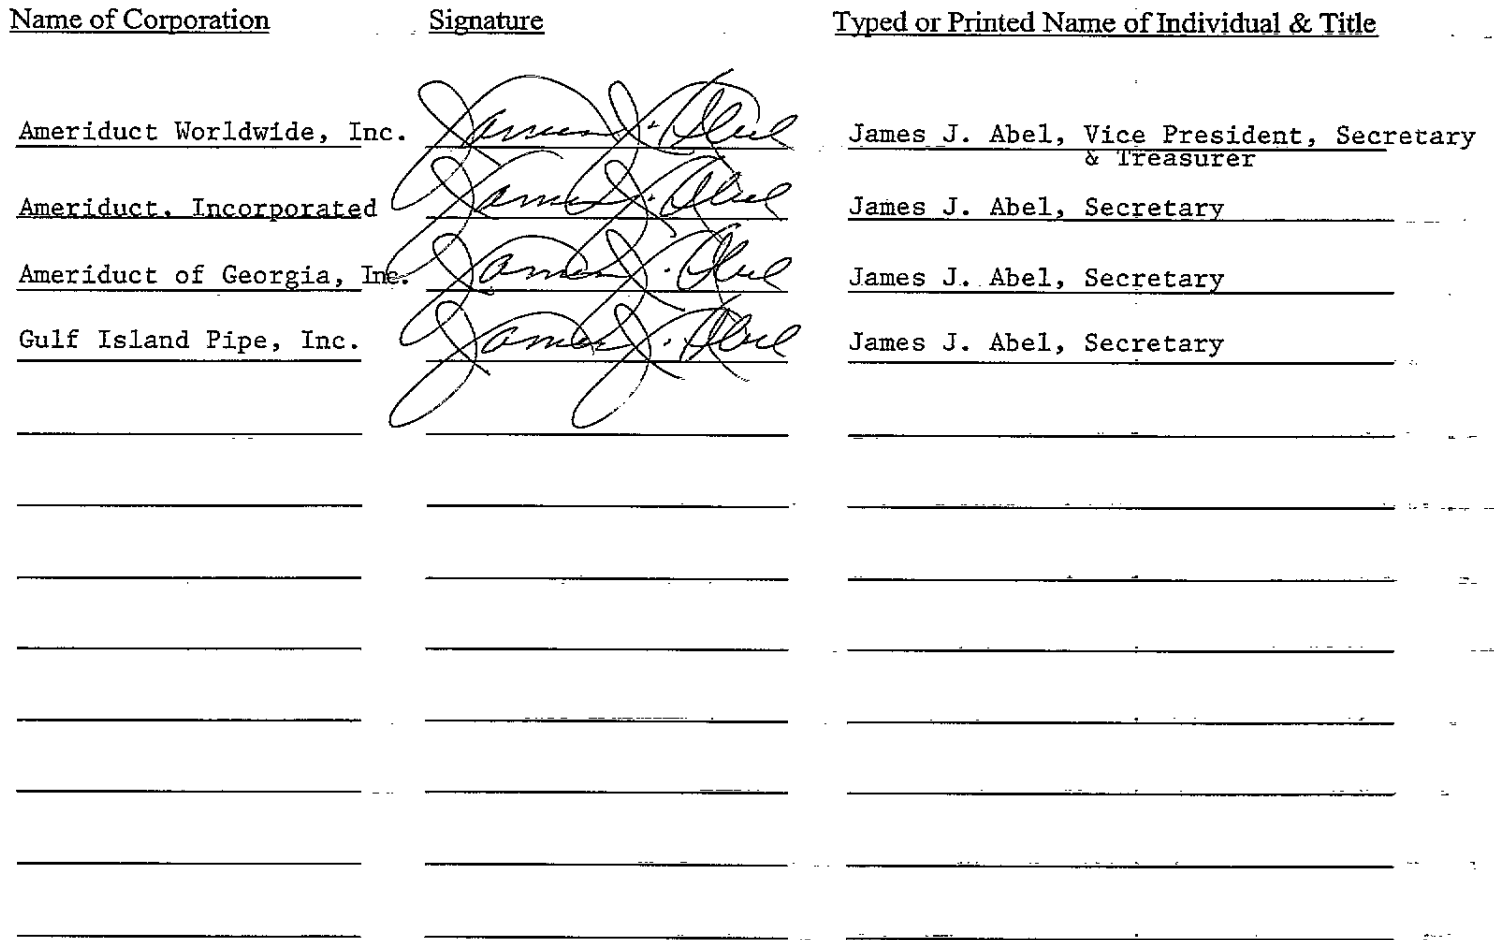 Name of Corporation Signature Typed or Printed Name of Individual & Title
Ameriduct Worldwide, Inc. James J. Abel James J. Abel, Vice President, Secretary
& Treasurer
Ameriduct, Incorporated James J. Abel James J. Abel, Secretary
Ameriduct of Georgia, Inc. James J. Abel James J. Abel, Secretary
Gulf Island Pipe, Inc. James J. Abel James J. Abel, Secretary